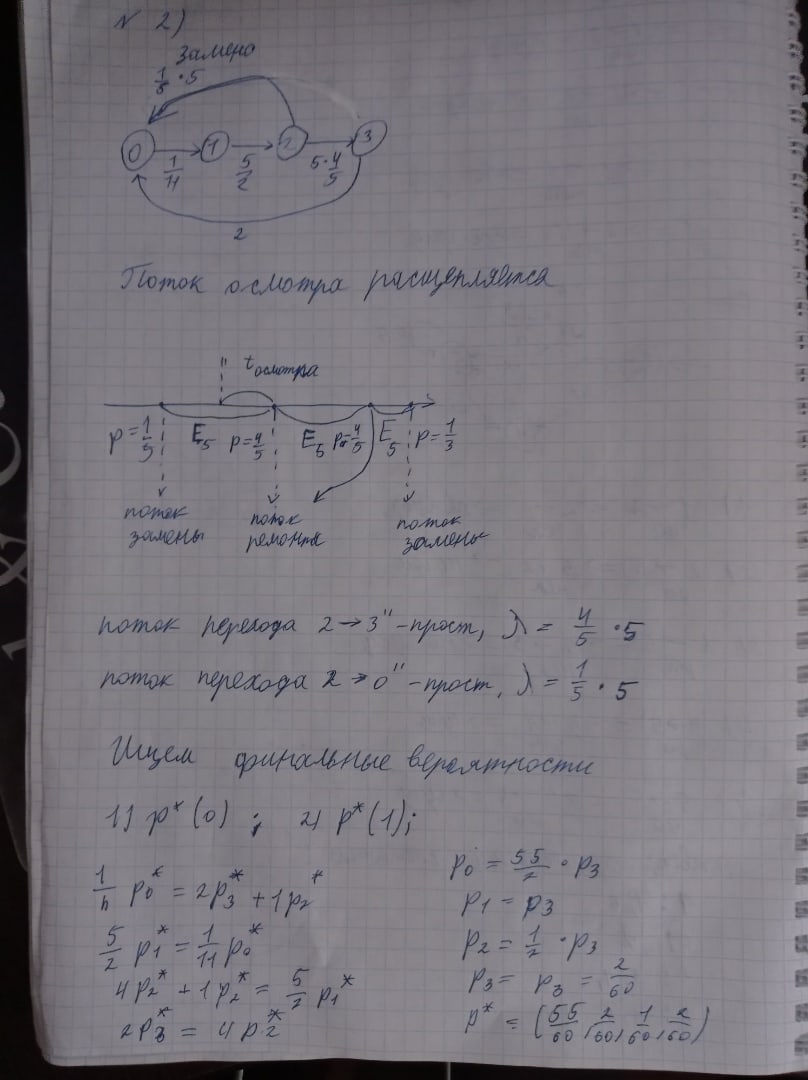 N 2)
замена
1/5 · 5
0 1 2 3
1/11 5/2 5·4/5
2
Поток осмотра расщепляется
" tосмотра
p=1/5 E5 p=4/5 E5 p=4/5 E5 p=1/3
поток замены
поток ремонта
поток замены
поток перехода 2→3"-прост, λ = 4/5 · 5
поток перехода 2→0"-прост, λ = 1/5 · 5
Ищем финальные вероятности
1) p*(0) ; 2) p*(1);
1/11 p0* = 2p3* + 1p2*
5/2 p1* = 1/11 p0*
4p2* + 1p2* = 5/2 p1*
2p3* = 4p2*
p0 = 55/2 · p3
p1 = p3
p2 = 1/2 · p3
p3 = p3 = 2/60
p* = (55/60, 2/60, 1/60, 2/60)